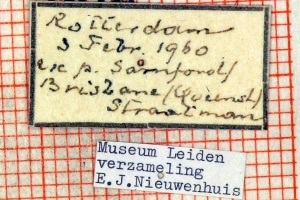 Rotterdam
3 Febr. 1960
ex p. Samford/
Brisbane (Queensl)
Straatman
Museum Leiden
verzameling
E.J.Nieuwenhuis